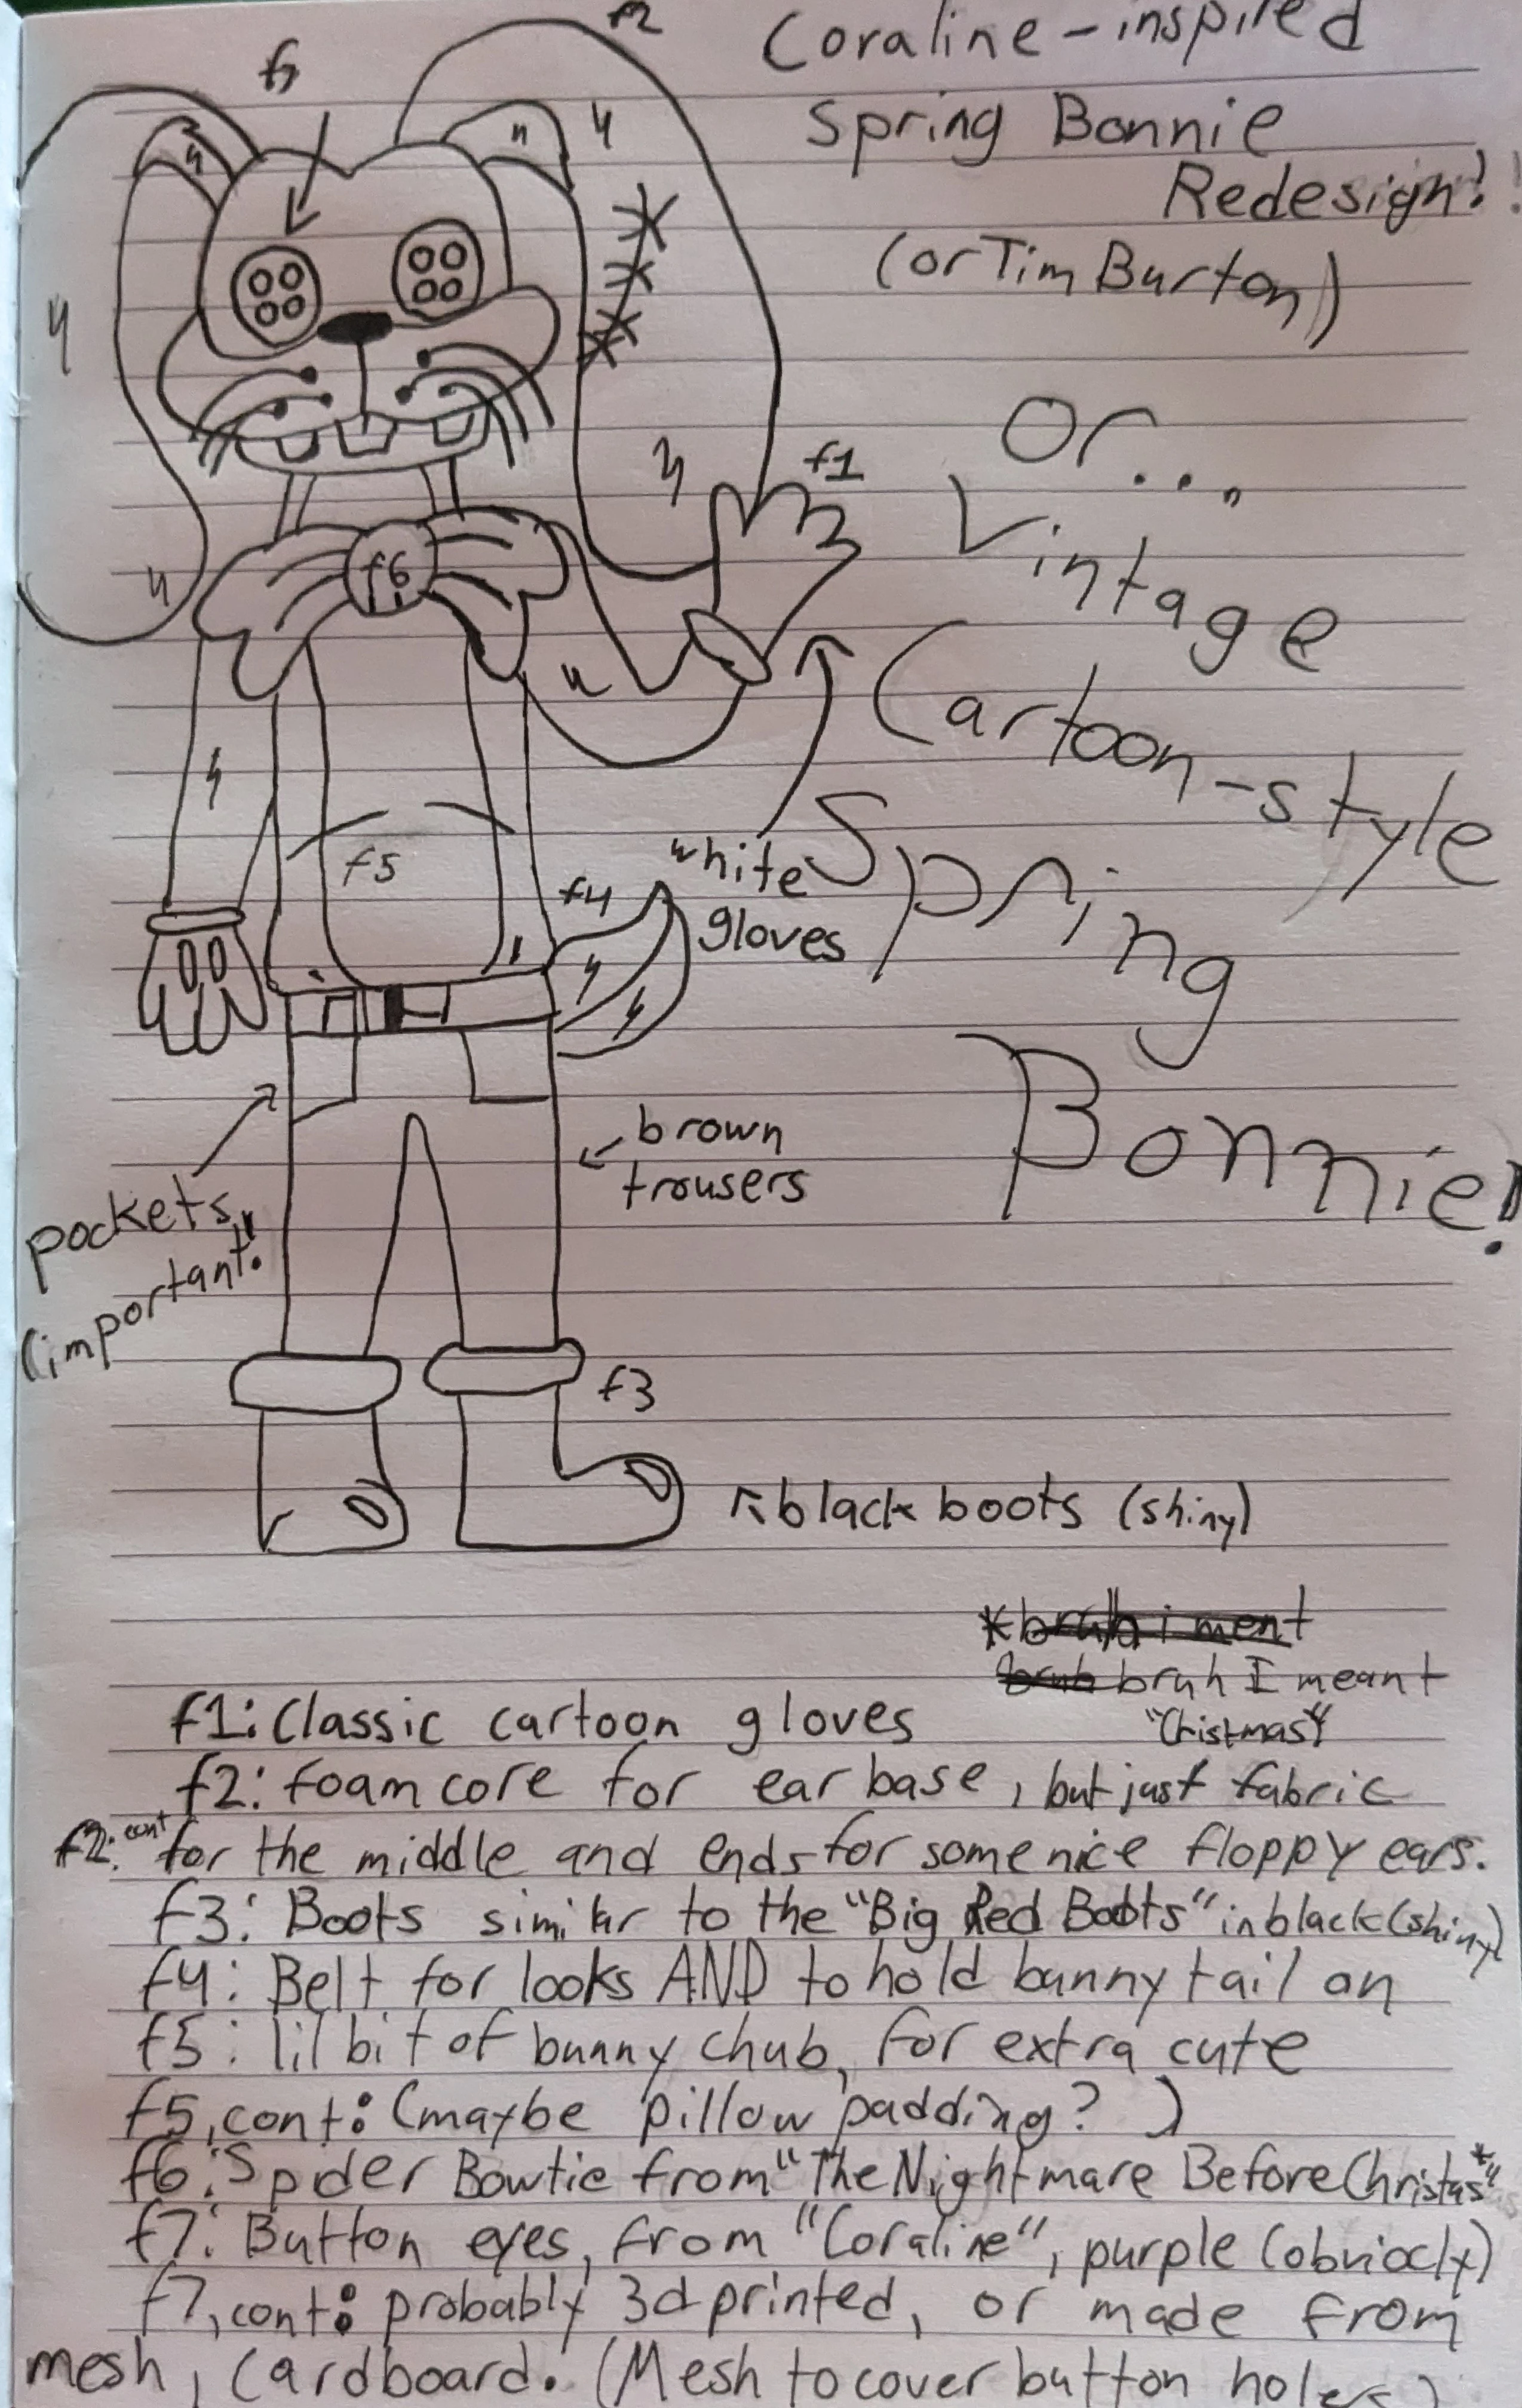 Coraline-inspired
Spring Bonnie
Redesign!!
(or Tim Burton)
Or...
Vintage
Cartoon-style
Spring
Bonnie!
f2
f1
f6
f5
f4
white
gloves
pockets
(important!)
brown
trousers
f3
black boots (shiny)
*bruh i ment
bruh bruh I meant
"Christmas"
f1: Classic cartoon gloves
f2: foam core for ear base, but just fabric
f2: cont for the middle and ends for some nice floppy ears.
f3: Boots similar to the "Big Red Boots" in black (shiny)
f4: Belt for looks AND to hold bunny tail on
f5: lil bit of bunny chub, for extra cute
f5, cont: (maybe pillow padding? )
f6: Spider Bowtie from "The Nightmare Before Christas*"
f7: Button eyes, from "Coraline", purple (obviocly)
f7, cont: probably 3d printed, or made from
mesh, cardboard. (Mesh to cover button holes)